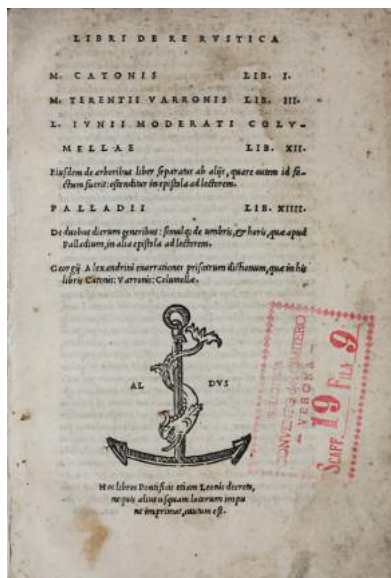 LIBRI DE RE RVSTICA
M. CATONIS LIB. I.
M. TERENTII VARRONIS LIB. III.
L. IVNII MODERATI COLV-
MELLAE LIB. XII.
Eiusdem de arboribus liber separatus ab alijs, quare autem id fa-
ctum fuerit: ostenditur in epistola ad lectorem.
PALLADII LIB. XIIII.
De duobus dierum generibus: simulq; de umbris, & horis, quæ apud
Palladium, in alia epistola ad lectorem.
Georgij Alexandrini enarrationes priscarum dictionum, quæ in his
libris Catonis: Varronis: Columellæ.
AL DVS
Hos libros Pontificis etiam Leonis decreto,
nequis alius usquam locorum impu
ne imprimat, cautum est.
CONVENTO
VERONA
SCAFF. 19 FILA 9